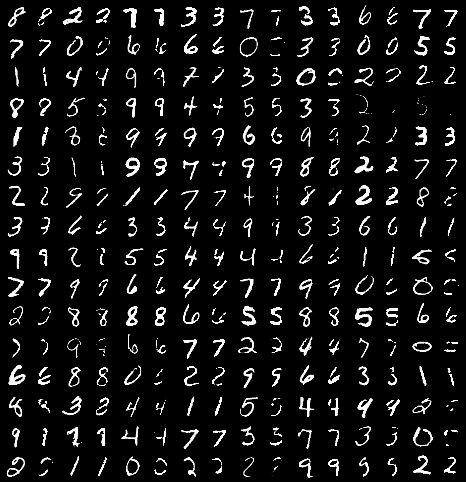 8 8 2 2 7 7 3 3 7 7 3 3 6 6 7 7
7 7 0 0 6 6 6 6 0 3 3 0 0 5 5
1 1 4 4 9 9 7 7 3 3 0 0 2 2 2 2
8 8 5 5 9 9 4 4 5 5 3 3 2 5
1 1 8 8 9 9 9 9 6 6 9 9 2 2 3 3
3 3 1 1 9 9 7 7 9 9 8 8 2 2 7 7
2 2 9 9 1 1 7 7 4 4 8 8 2 2 8 8
3 3 6 6 3 3 4 4 9 9 3 3 6 6 1 1
9 9 2 2 5 5 4 4 4 4 6 6 1 1 5 5
7 7 9 9 6 6 4 4 7 7 9 9 0 0 0 0
2 2 8 8 8 8 6 6 5 5 8 8 5 5 6 6
7 7 9 9 6 6 7 7 2 2 4 4 7 7 0
6 6 8 8 0 0 2 2 9 9 6 6 3 3 1 1
8 8 3 3 4 4 1 1 5 5 4 4 9 9 2
9 9 1 1 4 4 7 7 3 3 7 7 3 3 0
2 2 1 1 0 0 2 2 2 2 9 9 5 5 2 2